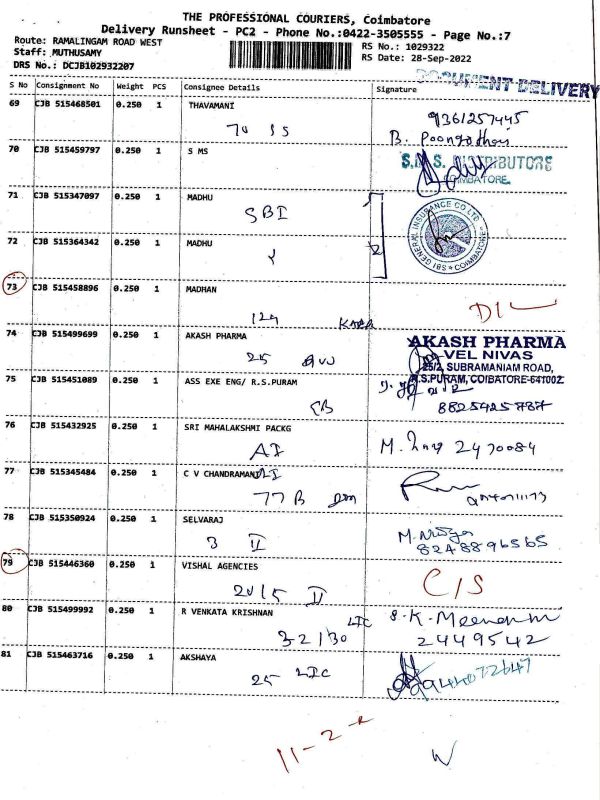 THE PROFESSIONAL COURIERS, Coimbatore
Delivery Runsheet - PC2 - Phone No.:0422-3505555 - Page No.:7
Route: RAMALINGAM ROAD WEST
Staff: MUTHUSAMY
DRS No.: DCJB102932207
RS No.: 1029322
RS Date: 28-Sep-2022
DOCUMENT DELIVERY
S No Consignment No Weight PCS Consignee Details Signature
69 CJB 515468501 0.250 1 THAVAMANI
70 SS
9361257445
B. Poongothai
70 CJB 515459797 0.250 1 S MS
S.M.S. DISTRIBUTORS
COIMBATORE.
71 CJB 515347097 0.250 1 MADHU
SBI
SBI GENERAL INSURANCE CO LTD
COIMBATORE
72 CJB 515364342 0.250 1 MADHU
73 CJB 515458896 0.250 1 MADHAN
129
D/L
74 CJB 515499699 0.250 1 AKASH PHARMA
25
AKASH PHARMA
VEL NIVAS
25/2, SUBRAMANIAM ROAD,
R.S.PURAM, COIBATORE-641002
75 CJB 515451089 0.250 1 ASS EXE ENG/ R.S.PURAM
EB
8825425787
76 CJB 515432925 0.250 1 SRI MAHALAKSHMI PACKG
AI
M. 2470084
77 CJB 515345484 0.250 1 C V CHANDRAMANI
77 B
78 CJB 515350924 0.250 1 SELVARAJ
3 II
M. Nidya
8248896565
79 CJB 515446360 0.250 1 VISHAL AGENCIES
20/5 II
C/S
80 CJB 515499992 0.250 1 R VENKATA KRISHNAN
32/30 LIC
S.K. Meena
2449542
81 CJB 515463716 0.250 1 AKSHAYA
25 LIC
9944072647
11-2-